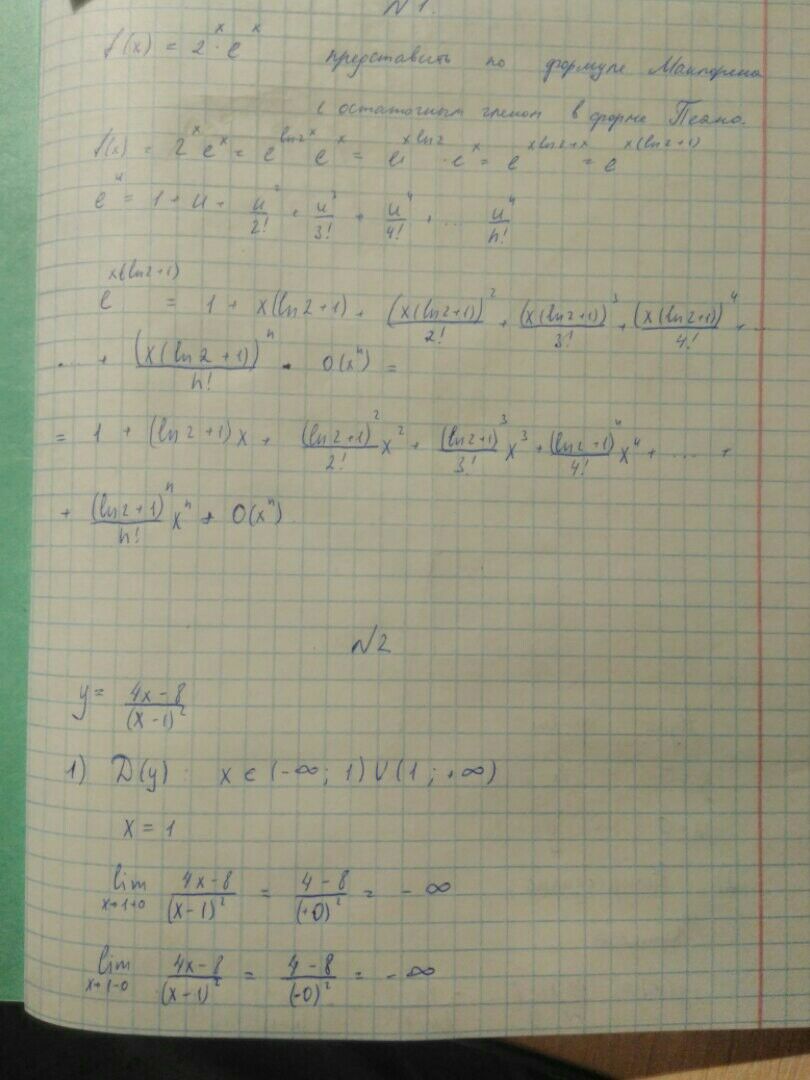 N1.
f(x) = 2^x · e^x представить по формуле Маклорена
с остаточным членом в форме Пеано.
f(x) = 2^x e^x = e^{ln2^x} e^x = e^{x ln2} · e^x = e^{x ln2+x} = e^{x(ln2+1)}
e^u = 1 + u + u^2/2! + u^3/3! + u^4/4! + ... u^n/n!
e^{x(ln2+1)} = 1 + x(ln2+1) + (x(ln2+1))^2/2! + (x(ln2+1))^3/3! + (x(ln2+1))^4/4! + ...
... + (x(ln2+1))^n/n! + O(x^n) =
= 1 + (ln2+1)x + (ln2+1)^2/2! x^2 + (ln2+1)^3/3! x^3 + (ln2+1)^4/4! x^4 + ... +
+ (ln2+1)^n/n! x^n + O(x^n).
N2
y = (4x-8)/(x-1)^2
1) D(y): x ∈ (-∞; 1) U (1; +∞)
x = 1
lim x→1+0 (4x-8)/(x-1)^2 = (4-8)/(+0)^2 = -∞
lim x→1-0 (4x-8)/(x-1)^2 = (4-8)/(-0)^2 = -∞